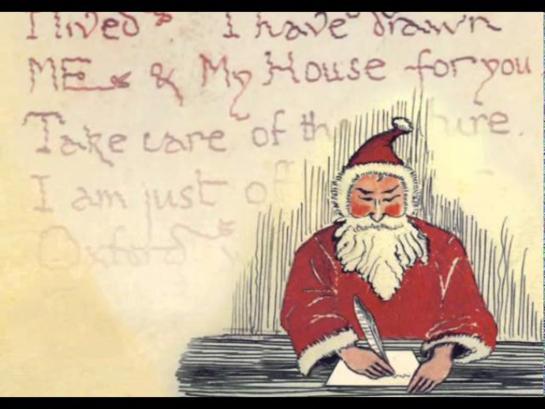 I lived? I have drawn
ME & My House for you
Take care of the picture.
I am just of
Oxford